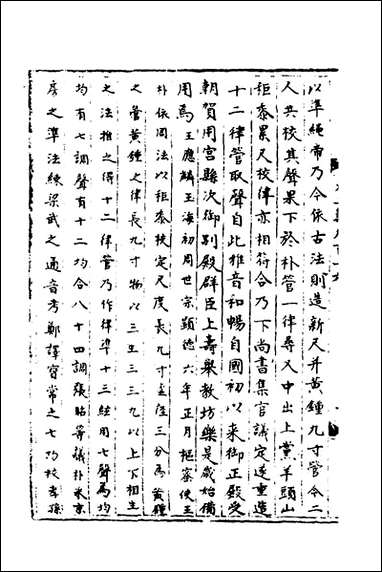 以準繩常乃令依古法則造新尺并黃鍾九寸管令二
人共校其聲果下於朴管一律尋又中出上黨羊頭山
秬黍累尺校律亦相符合乃下尚書集官議定遂重造
十二律管取聲自此雅音和暢自國初以來御正殿受
朝賀用宮縣次御別殿群臣上壽舉教坊樂是歲始備
用焉王應麟玉海初周世宗顯德六年正月樞密使王
朴依周法以秬黍校定尺度長九寸虛徑三分為黃鍾
之管黃鍾之律長九寸物以三生三三九以上下相生
之法推之得十二律管乃作律準十三絃用七聲為均
均有七調聲有十二均合八十四調張昭等議朴采京
房之準法練梁武之通音考鄭譯寶常之七均校孝孫